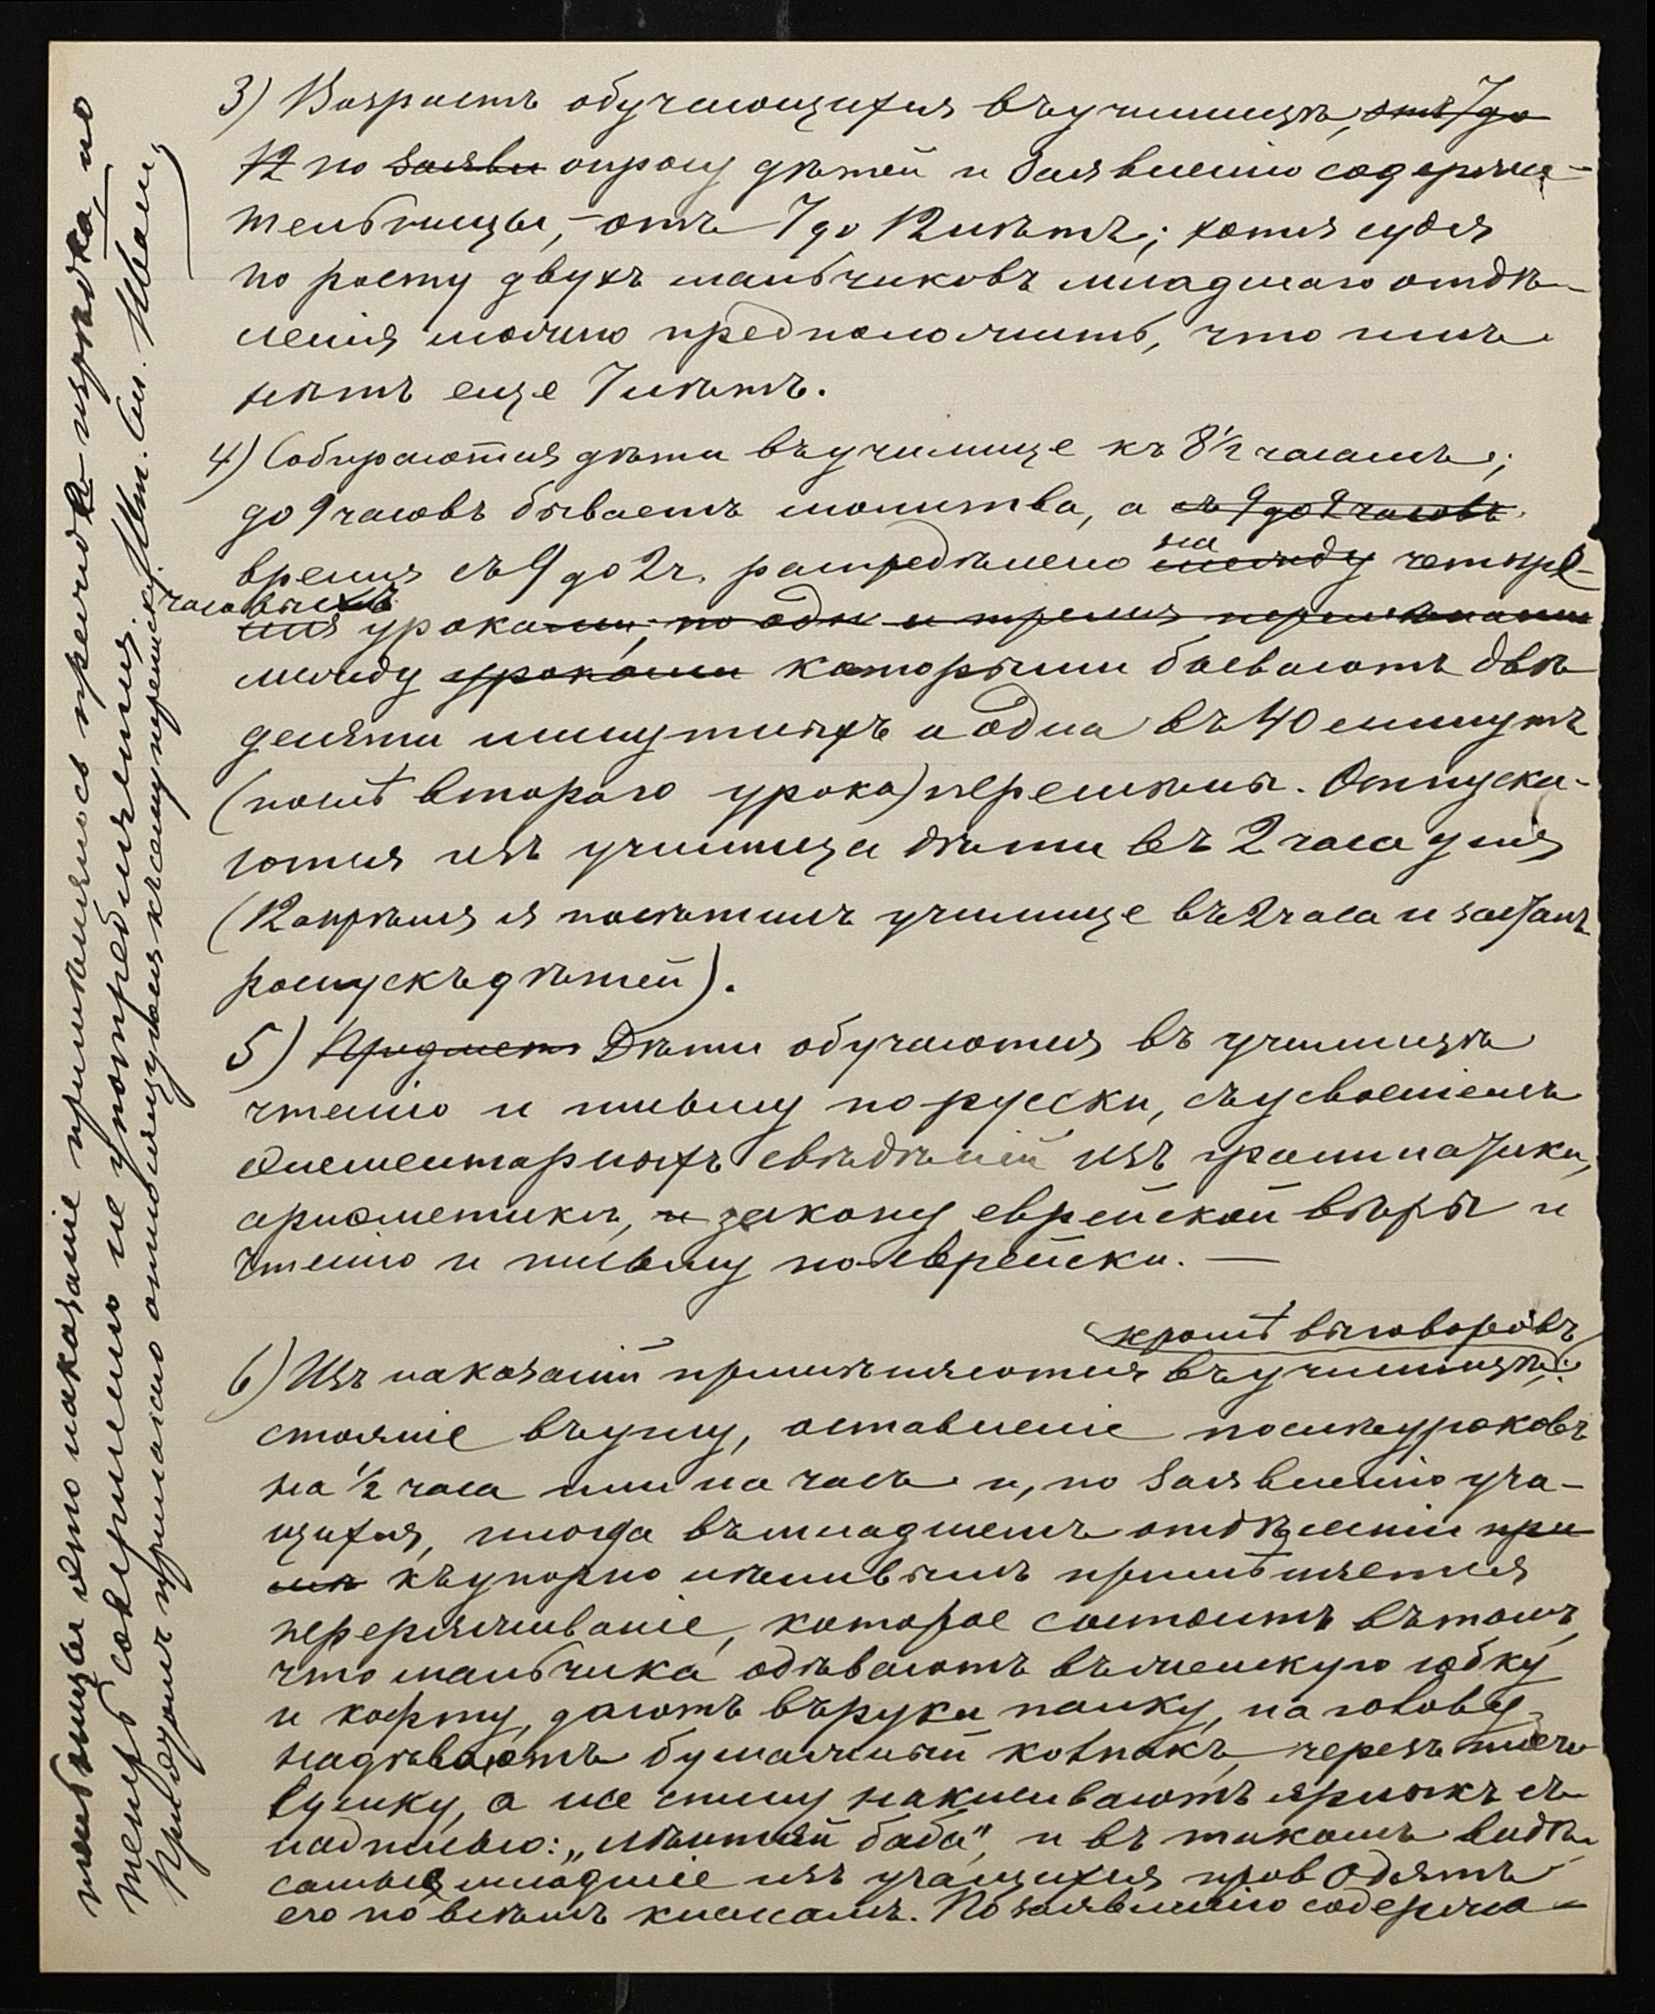 3) Возрастъ обучающихся въ училищѣ, отъ 7 до
12 по заявл опросу дѣтей и заявленію содержа-
тельницы, – отъ 7 до 12 лѣтъ; хотя судя
по росту двухъ мальчиковъ младшаго отдѣ-
ленія можно предположить, что имъ
нѣтъ еще 7 лѣтъ.
4) Собираются дѣти въ училище къ 8½ часамъ;
до 9 часовъ бываетъ молитва, а съ 9 до 2 часовъ
на
время съ 9 до 2 ч. распредѣлено между четыре-
часовыхъ
мя уроками; по одн и тремя перемѣнами
между уроками которыми бываютъ двѣ
десяти минутныхъ и одна въ 40 минутъ
(послѣ второго урока) перемѣны. Отпуска-
ются изъ училища дѣти въ 2 часа дня
(12 апрѣля я посѣтилъ училище въ 2 часа и засталъ
роспускъ дѣтей).
5) Предмет Дѣти обучаются въ училищѣ
чтенію и письму по русски, съ усвоеніемъ
элементарныхъ свѣдѣній изъ грамматики,
ариѳметикѣ, и закону еврейской вѣры и
чтенію и письму по еврейски. —
кромѣ выговоровъ
6) Изъ наказаній примѣняются въ училищѣ:
стояніе въ углу, оставленіе послѣ уроковъ
на ½ часа или на часъ и, по заявленію уча-
щихся, иногда въ младшемъ отдѣленіи при
мѣ къ упорно лѣнивымъ примѣняется
переряживаніе, которое состоитъ въ томъ,
что мальчика одѣваютъ въ женскую юбку
и кофту, даютъ въ руки палку, на голову
надѣваютъ бумажный колпакъ, черезъ плечо
сумку, а на спину наклеиваютъ ярлыкъ съ
надписью: „лѣнтяй баба", и въ такомъ видѣ
самые младшіе изъ учащихся проводятъ
его по всѣмъ классамъ. По заявленію содержа-
тельницы это наказаніе примѣнялось прежде изрѣдка, но
теперь совершенно не употребляется.